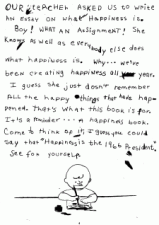 OUR TEACHER ASKED US to write
AN ESSAY ON what Happiness is.
Boy! WHAT AN Assignment! She
Knows as well as everybody else does
what happiness is. Why... we've
been creating happiness all year.
I guess she just doesn't remember
ALL the happy things that have hap-
pened. That's what this book is for.
It's a reminder... A happiness book.
Come to think of it, I guess you could
say that "Happiness is the 1966 President."
See for yourself